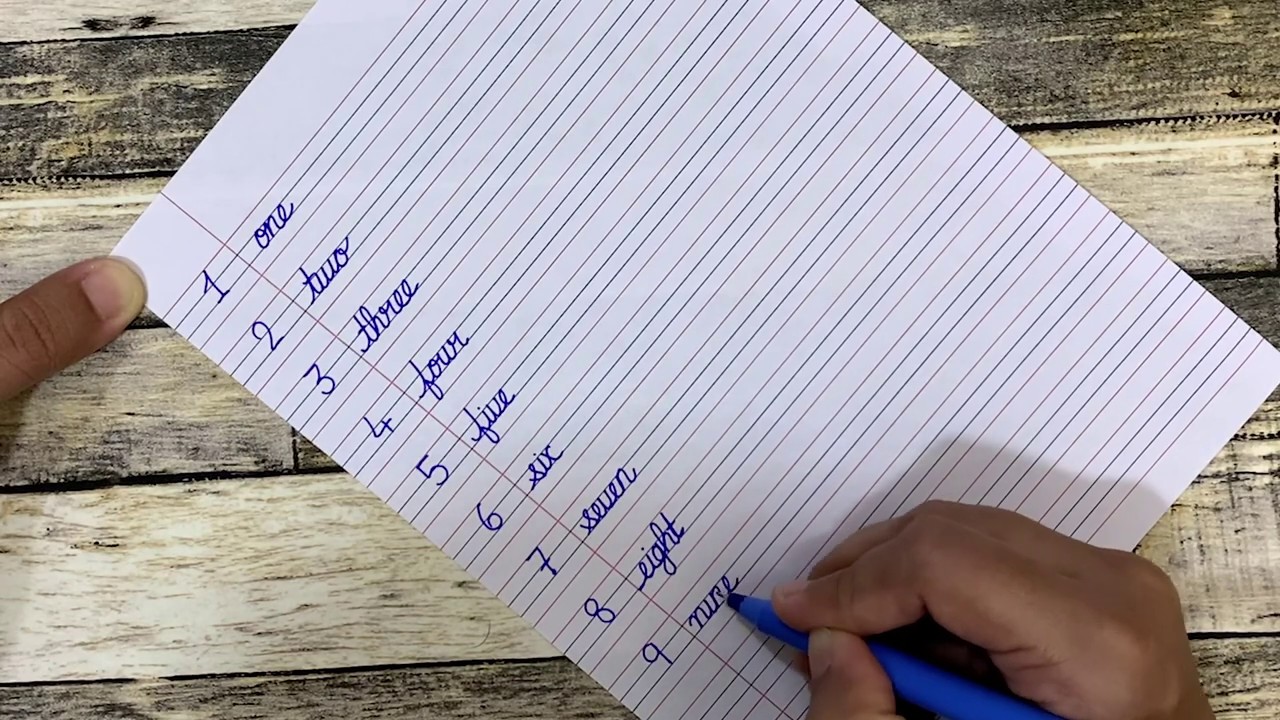 1 one
2 two
3 three
4 four
5 five
6 six
7 seven
8 eight
9 nine